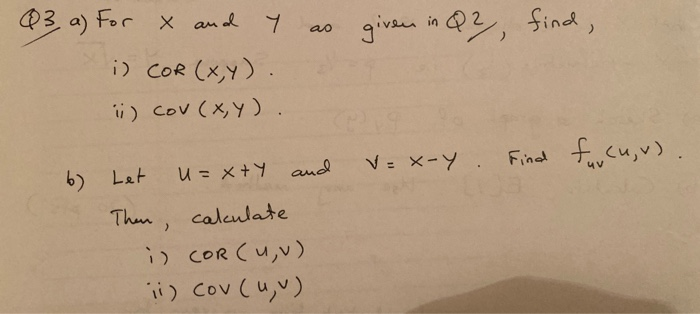 Q3 a) For X and Y as given in Q2, find,
i) COR (X,Y) .
ii) COV (X,Y) .
b) Let U = X+Y and V = X-Y . Find f_uv (u,v) .
Then, calculate
i) COR (U,V)
ii) COV (U,V)